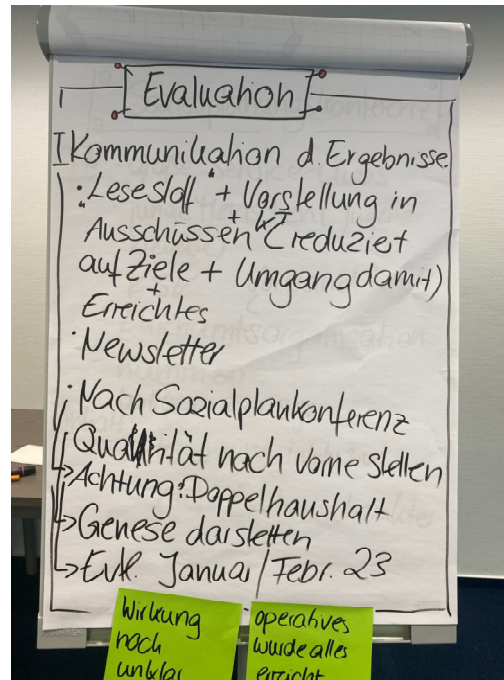 Evaluation
I Kommunikation d. Ergebnisse
• "Lesestoff" + Vorstellung in
+ KT
Ausschüssen (reduziert
auf Ziele + Umgang damit)
+
Erreichtes
• Newsletter
• Nach Sozialplankonferenz
nach vorne stellen
→ Achtung: Doppelhaushalt
→ Genese darstellen
→ Evtl. Januar / Febr. 23
Wirkung
noch
unklar
operatives
wurde alles
erreicht